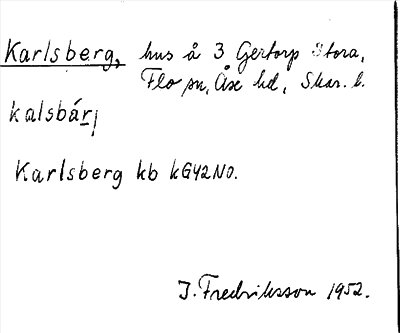 Karlsberg, hus å 3 Gertorp Stora,
Flo sn, Åse hd, Skar. l.
kalsbárj
Karlsberg kb kG42NO.
I. Fredriksson 1952.